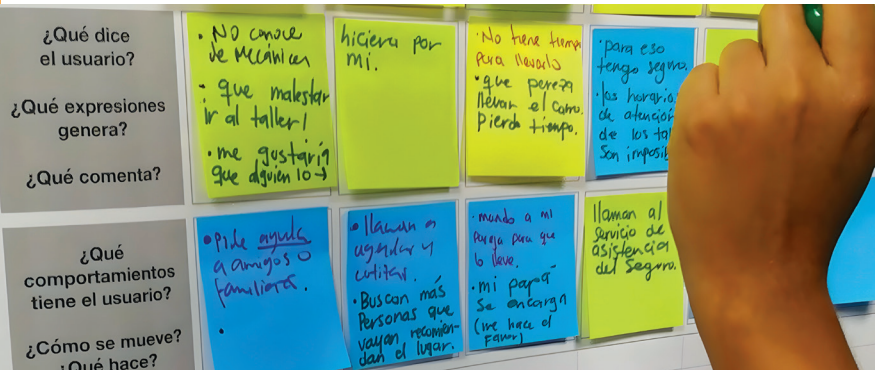 ¿Qué dice
el usuario?
¿Qué expresiones
genera?
¿Qué comenta?
• No conoce
de Mecánica
• que malestar
ir al taller!
• me gustaría
que alguien lo →
hiciera por
mi.
• No tiene tiempo
para llevarlo
• que pereza
llevar el carro.
Pierdo tiempo.
• para eso
tengo seguro.
• los horarios
de atención
de los
Son
¿Qué
comportamientos
tiene el usuario?
¿Cómo se mueve?
¿Qué hace?
• Pide ayuda
a amigos o
familiares.
•
• llaman a
agendar y
cotizar.
• Buscan más
Personas que
vayan recomien-
dan el lugar.
• mando a mi
pareja para que
lo lleve.
• mi papá
se encarga
(me hace el
Favor)
llaman al
servicio de
asistencia
del Seguro.